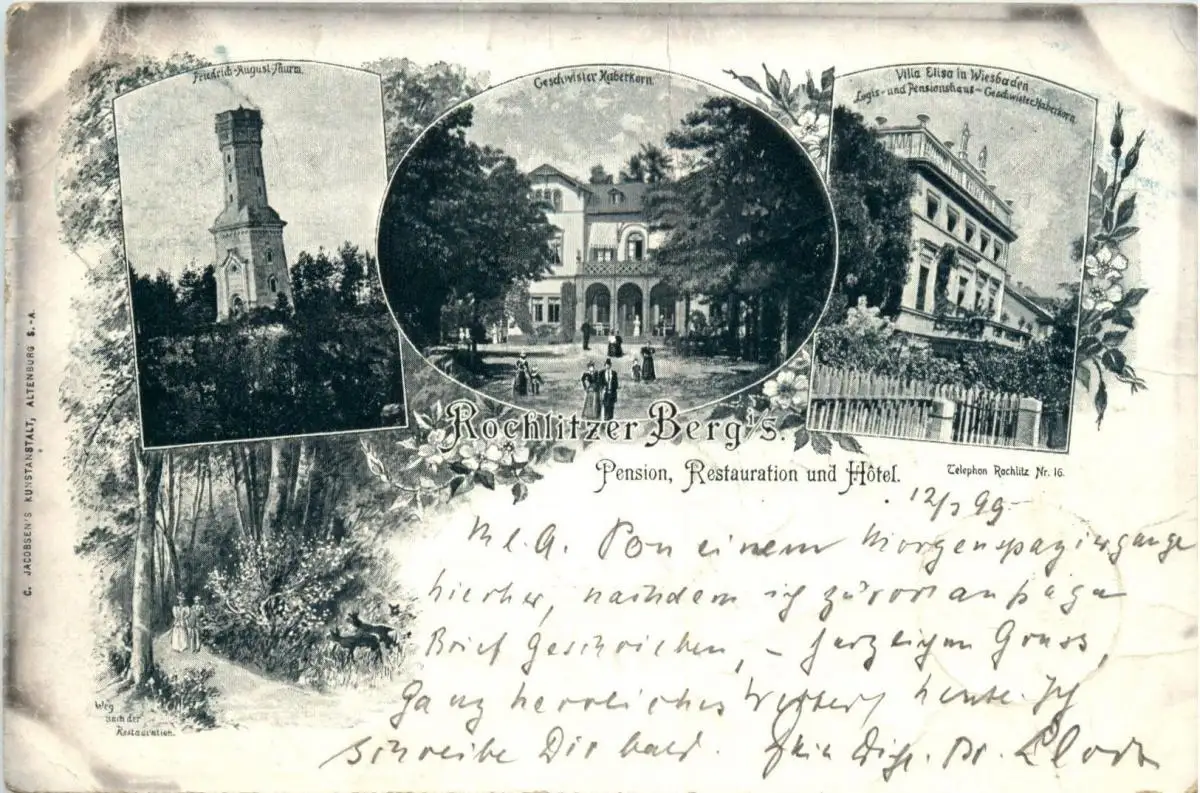 Friedrich-August-Thurm.
Geschwister Haberkorn
Villa Elisa in Wiesbaden
Logis- und Pensionshaus - Geschwister Haberkorn.
C. JACOBSEN'S KUNSTANSTALT, ALTENBURG S.-A.
Rochlitzer Berg's.
Pension, Restauration und Hôtel.
Telephon Rochlitz Nr. 16.
99
M. l. A. Von einem Morgenspaziergange
hierher, nachdem ich zuvor an
Brief geschrieben, - herzlichen Gruss
Ganz herrliches Wetter heute. Ich
schreibe Dir bald. Dr.
Weg
nach der
Restauration.